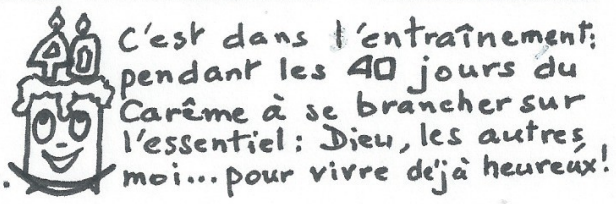 40
C'est dans l'entraînement:
pendant les 40 jours du
Carême à se brancher sur
l'essentiel: Dieu, les autres,
moi... pour vivre déjà heureux!